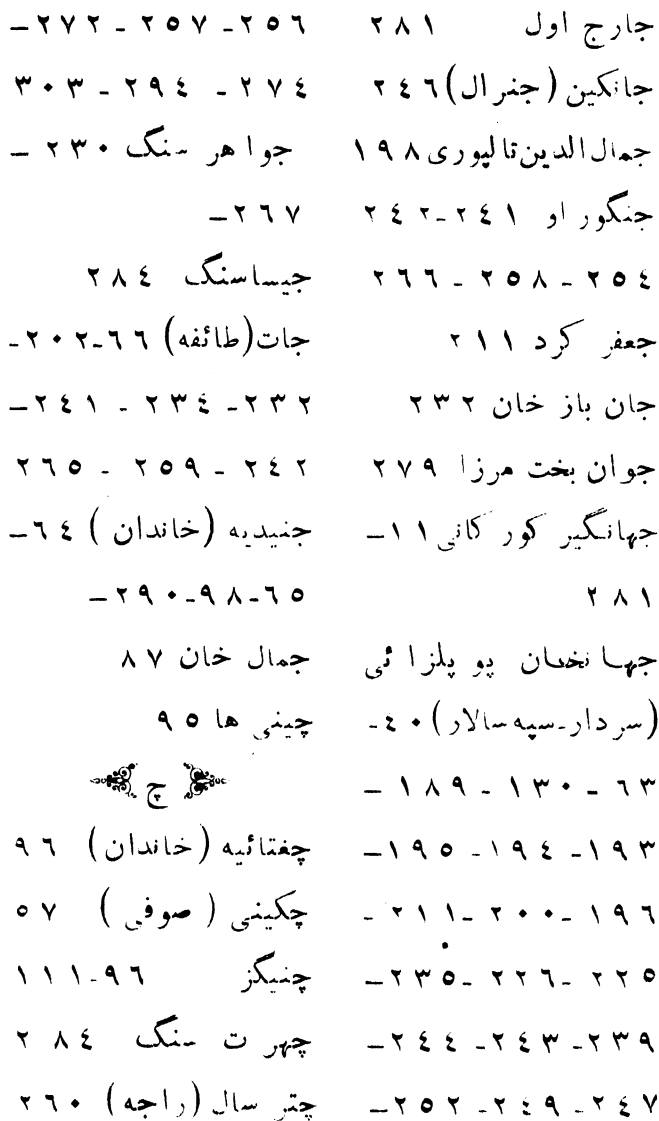 جارج اول ۲۸۱
جانکین (جنرال) ۲٤٦
جمال الدین تالپوری ۱۹۸
جنگور او ۲٤۱-۲٤۲
۲٥٤ - ۲٥۸ - ۲٦٦
جعفر کرد ۲۱۱
جان باز خان ۲۳۲
جوان بخت مرزا ۲۷۹
جهانگیر کور کانی ۱۱-
۲۸۱
جهانخان پو پلزائی
(سردار-سپه سالار) ٤۰-
٦۳ - ۱۳۰ - ۱۸۹ -
۱۹۳- ۱۹٤ - ۱۹٥-
۱۹٦ -۲۰۰ -۲۱۱ -
۲۲٥ -۲۲٦ -۲۳٥-
۲۳۹ -۲٤۳ -۲٤٤-
۲٤۷ -۲٤۹ -۲٥۲-
۲٥٦ - ۲٥۷ - ۲۷۲-
۲۷٤ - ۲۹٤ - ۳۰۳
جواهر سنگ ۲۳۰ -
۲٦۷-
جیساسنگ ۲۸٤
جات (طائفه) ٦٦-۲۰۲-
۲۳۲- ۲۳٤ - ۲٤۱-
۲٤۲ - ۲٥۹ - ۲٦٥
جنیدیه (خاندان) ٦٤-
٦٥-۹۸-۲۹۰-
جمال خان ۸۷
چینی ها ۹٥
چ
چغتائیه (خاندان) ۹٦
چکینی (صوفی) ٥۷
چنیگز ۹٦-۱۱۱
چهر ت سنگ ۲۸٤
چتر سال (راجه) ۲٦۰